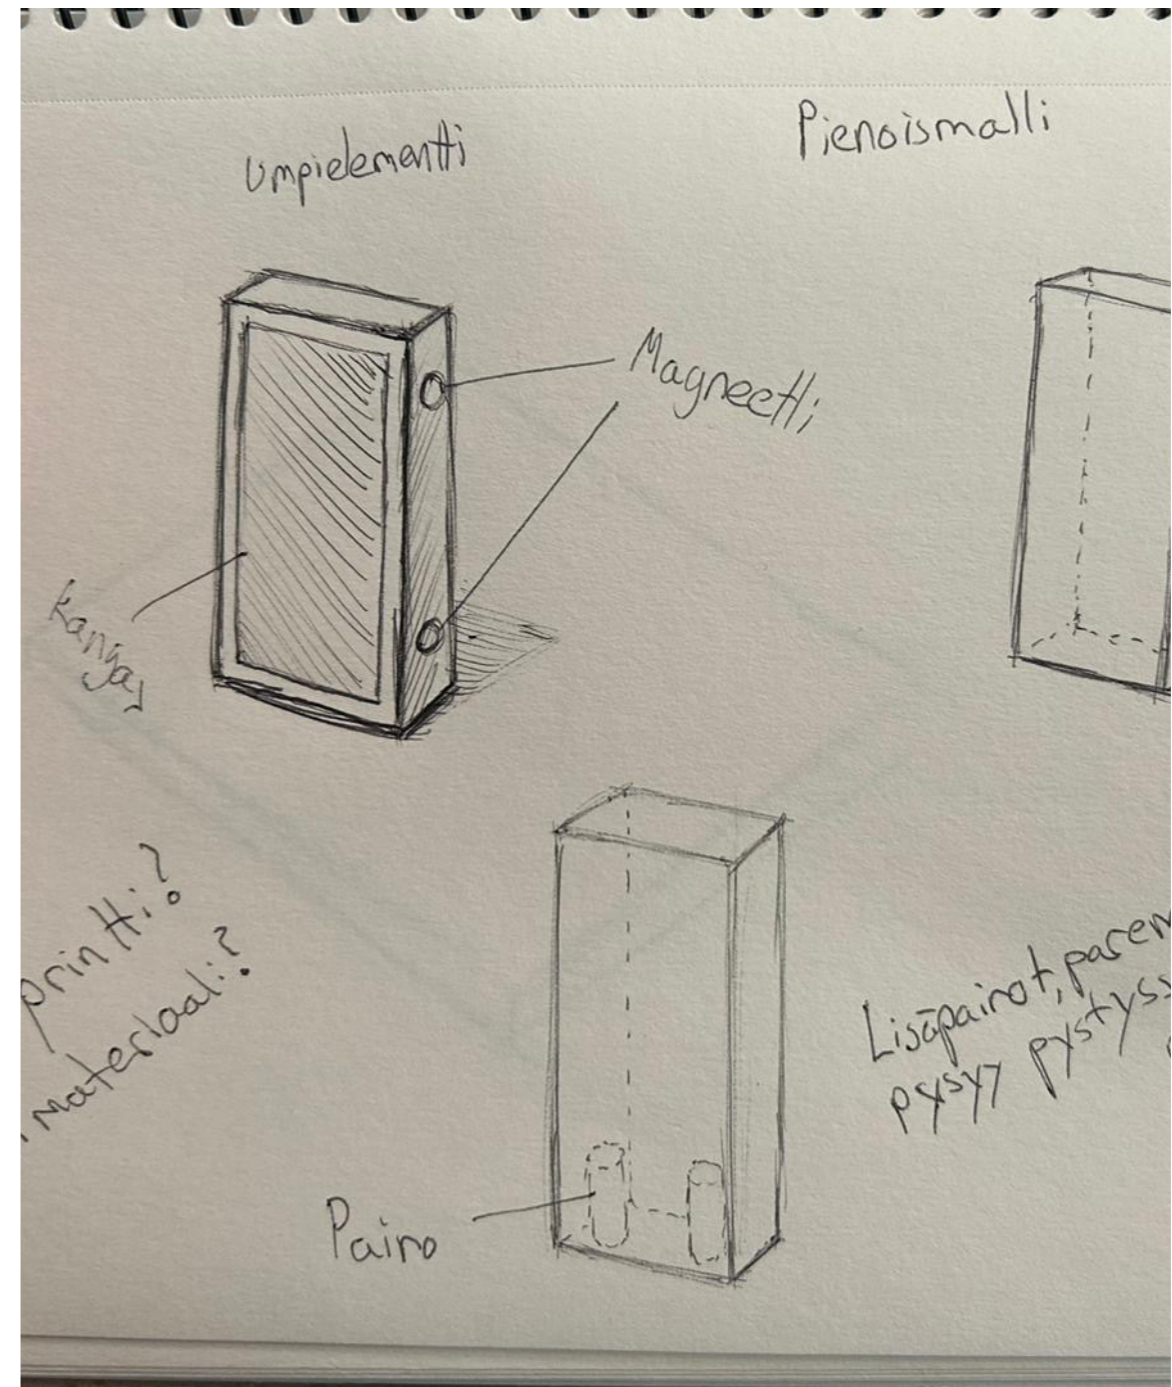 Umpielementti
Pienoismalli
Magneetti
Kangas
printti?
Materiaali?
Lisäpainot, parem
pysyy pystyss
Paino